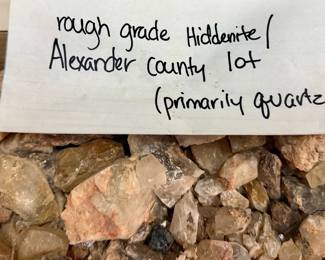 rough grade Hiddenite/
Alexander County lot
(primarily quartz